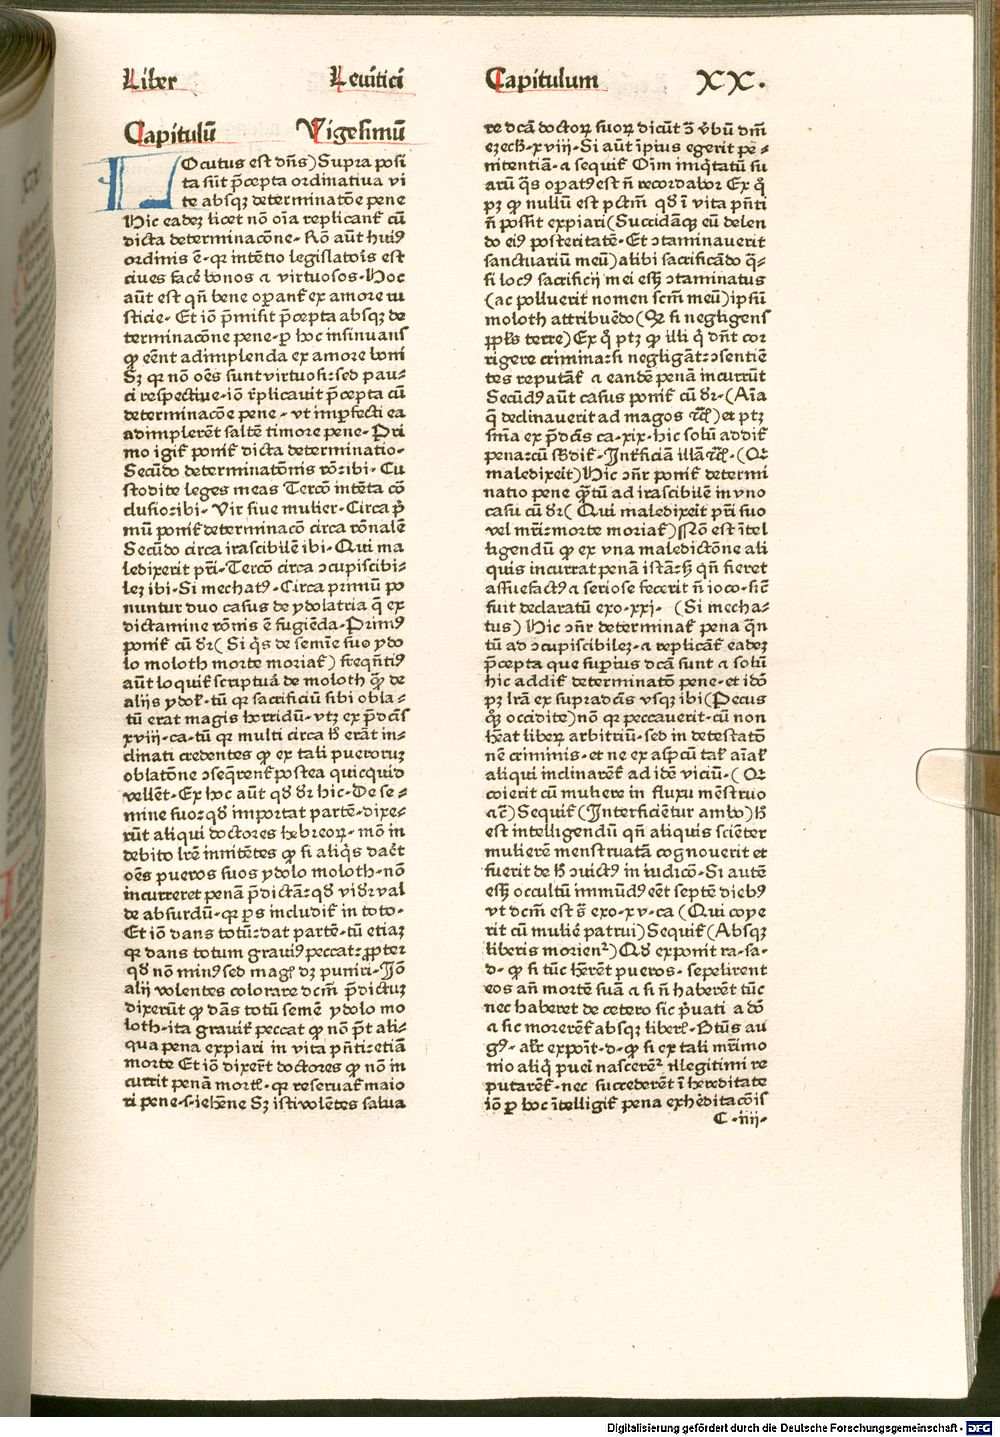 Liber Leuitici Capitulum XX.
Capitulū Vigesimū
LOcutus est dn̄s) Supra posi
ta sūt p̄cepta ordinatiua vi
te absqꝫ determinatōe pene
Hic eadeꝫ licet nō oīa replicant᷑ cū
dicta determinacōne. Rō aūt huiꝰ
ordinis ē. qr intētio legislatoris est
ciues facē bonos ⁊ virtuosos. Hoc
aūt est qn̄ bene oꝑant᷑ ex amore iu
sticie. Et iō p̄misit p̄cepta absqꝫ de
terminacōne pene. ꝑ hoc insinuans
ꝙ eēnt adimplenda ex amore boni
Sꝫ qr nō oēs sunt virtuosi: sed pau/
ci respectiue. iō r̄plicauit p̄cepta cū
determinacōe pene. vt imꝑfecti ea
adimplerēt saltē timore pene. Pri
mo igit᷑ ponit᷑ dicta determinatio.
Secūdo determinatōnis rō: ibi. Cu
stodite leges meas Tercō intēta cō
clusio: ibi. Vir siue mulier. Circa p̄
mū ponit᷑ determinacō circa rōnalē
Secūdo circa irascibilē ibi. Qui ma
ledixerit pr̄i. Tercō circa ↄcupiscibi/
leꝫ ibi. Si mechatꝰ. Circa primū po
nuntur duo casus de ydolatria q̄ ex
dictamine rōnis ē fugiēda. Primꝰ
ponit᷑ cū dr̄ ( Si q̇s de semīe suo ydo
lo moloth morte moriat᷑ ) freqn̄tiꝰ
aūt loquit᷑ scriptura de moloth ꝙ̄ de
alijs ydol᷑. tū qr sacrificiū sibi obla/
tū erat magis horridū. vtꝫ ex p̄dcīs
xviij. ca. tū qr multi circa h̄ erāt in/
clinati credentes ꝙ ex tali pueroruꝫ
oblatōne ↄseq̄rent᷑ postea quicquid
vellēt. Ex hoc aūt qd̄ dr̄ hic. De se/
mine suo: qd̄ importat partē. dixe/
rūt aliqui doctores hebreoꝝ. mō in
debito lr̄e innitētes ꝙ si aliq̇s daēt
oēs pueros suos ydolo moloth. nō
incurreret penā p̄dictā: qd̄ vidr̄ val
de absurdū. qr ps includit᷑ in toto.
Et iō dans totū: dat partē. tū etiaꝫ
qr dans totum grauiꝰ peccat: ꝓpter
qd̄ nō minꝰ sed magꝭ dꝫ puniri. Iō
alij volentes colorare dcm̄ p̄dictuꝫ
dixerūt ꝙ dās totū semē ydolo mo
loth. ita grauit᷑ peccat ꝙ nō p̄t ali/
qua pena expiari in vita pn̄ti: etiā
morte Et iō dixer̄t doctores ꝙ nō in
currit penā mortꝭ. qr reseruat᷑ maio
ri pene. s. iehēne Sꝫ isti volētes salua
re dcā doctoꝝ suoꝝ dicūt ↄ̄ v̄bū dm̄
ezech̄. xviij. Si aūt īpius egerit pe/
nitentiā. ⁊ sequit᷑ Oīm iniq̇tatū su
arū q̄s oꝑatꝰ est n̄ recordabor Ex q̊
pꝫ ꝙ nullū est pctm̄ qd̄ ī vita pn̄ti
n̄ possit expiari (Succidāqꝫ eū delen
do eiꝰ posteritatē. Et ↄtaminauerit
sanctuariū meū) alibi sacrificādo q̄/
si locꝰ sacrificij mei esset ↄtaminatus
(ac polluerit nomen scm̄ meū) ipsū
moloth attribuēdo (Qꝫ si negligens
ppl̄s terre) Ex q̊ ptꝫ ꝙ illi q̇ dn̄t cor
rigere crimina: si negligāt: ↄsentiē
tes reputāt᷑ ⁊ eandē penā incurrūt
Secūdꝰ aūt casus ponit᷑ cū dr̄. (Aīa
q̄ declinauerit ad magos ⁊c̄) et ptꝫ
sn̄ia ex p̄dcīs ca. xix. hic solū addit᷑
pena: cū sb̄dit᷑. Int᷑ficiā illā ⁊c̄. (Qr
maledixeit) Hic ↄn̄r ponit᷑ determi
natio pene q̄tū ad irascibilē in vno
casu cū dr̄ ( Qui maledixeit pr̄i suo
vel mr̄i: morte moriat᷑ ) Nō est ītel
ligendū ꝙ ex vna maledictōne ali
quis incurrat penā istā: sꝫ qn̄ fieret
assuefactꝰ ⁊ seriose fecerit n̄ ioco. sic̄
fuit declaratū exo. xxj. (Si mecha/
tus) Hic ↄn̄r determinat᷑ pena q̄n
tū ad ↄcupiscibileꝫ. ⁊ replicāt᷑ eadeꝫ
p̄cepta que suꝑius dcā sunt ⁊ solū
hic addit᷑ determinatō pene. et idō
pꝫ lr̄a ex supradcīs vsqꝫ ibi (Pecus
qꝫ occidite) nō qr peccauerit. cū non
hēat liberꝫ arbitriū. sed in detestatō
nē criminis. et ne ex aspcū tal᷑ aīal᷑
aliqui inclinarēt᷑ ad idē viciū. ( Qr
coierit cū muliere in fluxu mēstruo
⁊c̄) Sequit᷑ (Interficiētur ambo) h̄
est intelligendū qn̄ aliquis sciēter
mulierē menstruatā cognouerit et
fuerit de h̄ ↄuictꝰ in iudicō. Si autē
esset occultū immūdꝰ eēt septē diebꝰ
vt dcm̄ est s̄ exo. xv. ca (Qui coye
rit cū muliē patrui) Sequit᷑ (Absqꝫ
liberis morient᷑) Qd̄ exponit ra. sa.
d. ꝙ si tūc hērēt pueros. sepelirent
eos an̄ mortē suā ⁊ si n̄ haberēt tūc
nec haberet de cetero sic p̄uati a dō
⁊ sic morerēt᷑ absqꝫ liberꝭ. Btūs au
gꝰ. alr̄ expōit. d. ꝙ si ex tali mr̄imo
nio aliq̇ pueī nascerēt᷑ illegitimi re
putarēt᷑. nec succederēt ī hereditate
iō ꝑ hoc ītelligit᷑ pena exhēditacōis
C. iiij.